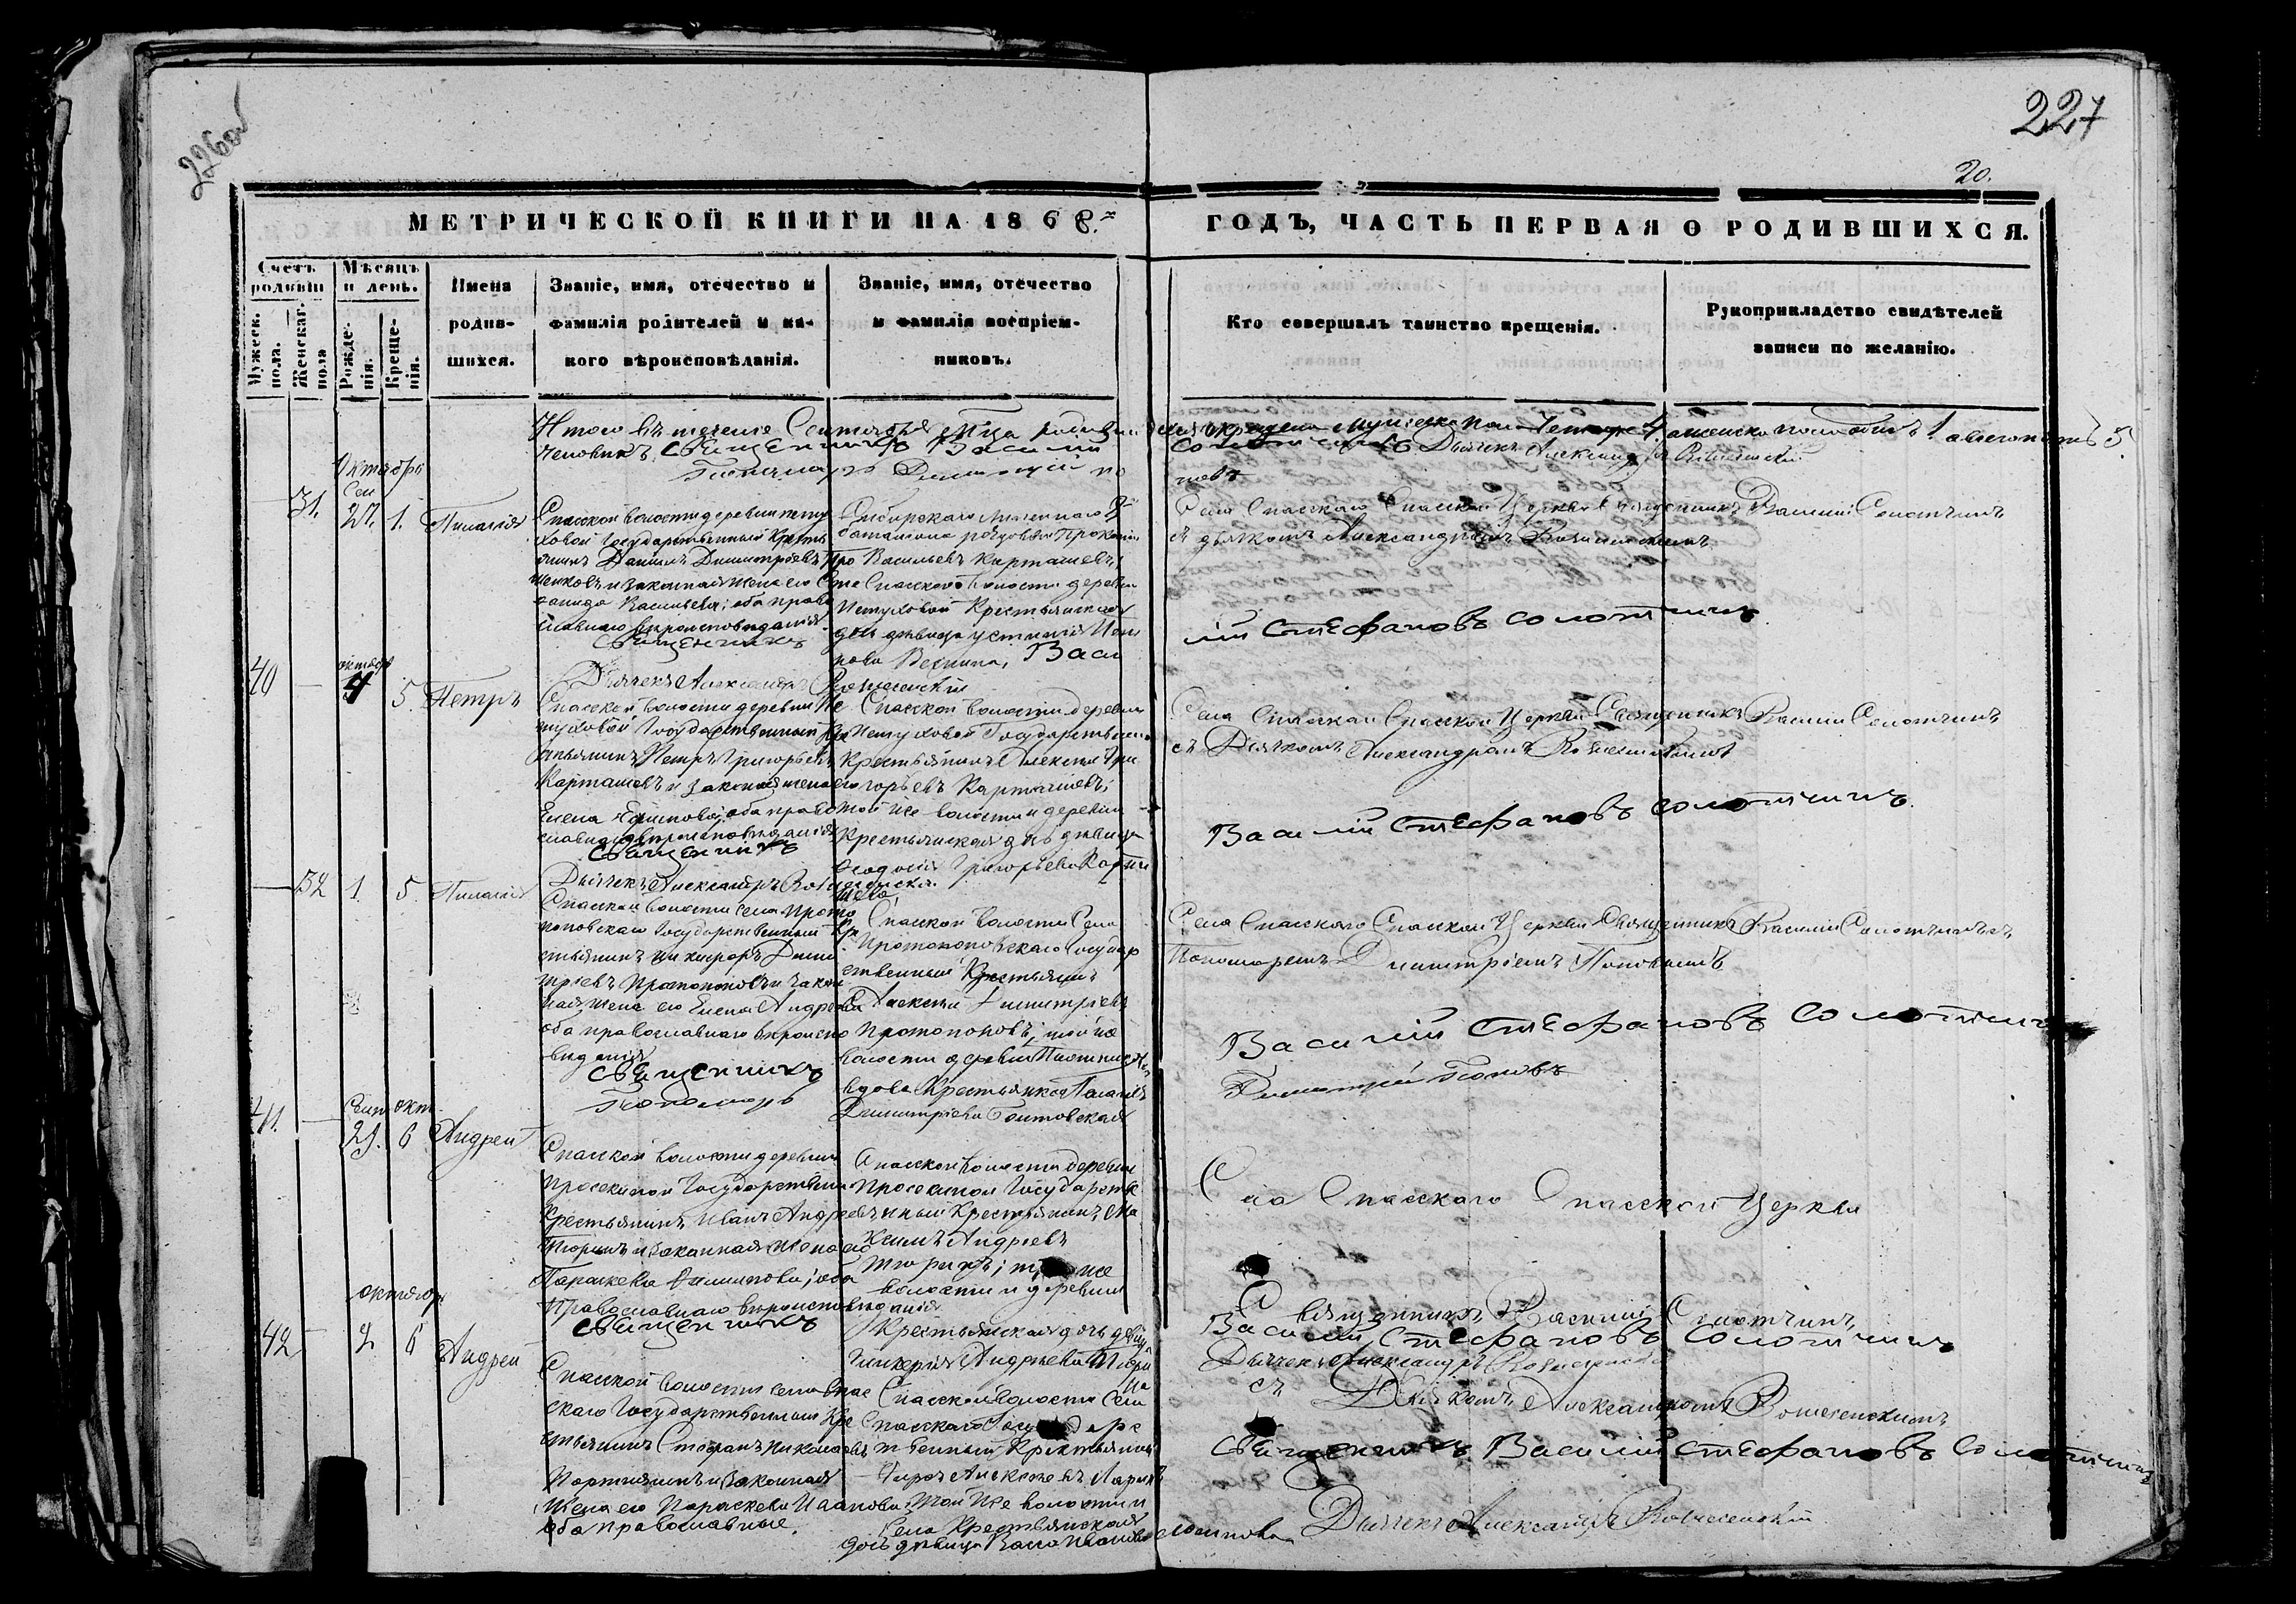 226об
227
20.
МЕТРИЧЕСКОЙ КНИГИ НА 1868.
ГОДЪ, ЧАСТЬ ПЕРВАЯ О РОДИВШИХСЯ.
Счетъ родивш
Мужеск. пола.
Женскаг. пола
Мѣсяцъ и день.
Рожде-нія.
Креще-нія.
Имена
родив-
шихся.
Званіе, имя, отечество и
фамилія родителей и ка-
кого вѣроисповѣданія.
Званіе, имя, отечество
и фамилія воспріем-
никовъ.
Кто совершалъ таинство крещенія.
Рукоприкладство свидѣтелей
записи по желанію.
Итого въ теченіе Сентября
человѣкъ. Священникъ Василій
Дьячекъ Александръ
Октябрь
Сен
31. 27. 1. Пилагія
Спасской волости деревни Пету
ховой Государственный Кресть
янинъ Даніилъ Димитріевъ
и законная жена его Сте
панида Васильева; оба право
славнаго вѣроисповѣданія
Священникъ
Сибирскаго линейнаго
баталіона рядовой Прокопій
Васильевъ Карташевъ;
Спасской волости деревни
Петуховой Крестьянская
дочь дѣвица Устинія
Васи
Села Спасскаго Спасской Церкви Священникъ Василій Солотчинъ
съ дьячкомъ Александромъ Вознесенскимъ
лій Стефановъ Солотчинъ
октябрь
40 — 4 5. Петръ
Дьячекъ Александръ Вознесенскій
Спасской волости деревни Пе
туховой Государственный Кре
стьянинъ Петръ Григорьевъ
Карташевъ и законная жена его
Елена оба право
славнаго вѣроисповѣданія
Священникъ
Спасской волости деревни
Петуховой Государственный
Крестьянинъ Алексѣй Гри
горьевъ Карташевъ;
той же волости и деревни
Крестьянская дочь дѣвица
Ѳеодосія Григорьева Карта
шева
Села Спасскаго Спасской Церкви Священникъ Василій Солотчинъ
съ Дьячкомъ Александромъ Вознесенскимъ
Василій Стефановъ Солотчинъ.
— 32 1 5. Пилагія
Дьячекъ Александръ Вознесенскій
Спасской волости села Прото
поповскаго Государственный Кр
естьянинъ Никифоръ Дими
тріевъ Протопоповъ и закон
ная жена его Елена Андреева
оба православнаго вѣроиспо
вѣданія
Священникъ
Пономарь
Спасской волости Села
Протопоповскаго Государ
ственный Крестьянинъ
Алексѣй Димитріевъ
Протопоповъ; той же
волости деревни
вдова Крестьянка Пелагія
Димитріева
Села Спасскаго Спасской Церкви Священникъ Василій Солотчинъ съ
Пономаремъ Димитріемъ Поповымъ
Василій Стефановъ Солотчинъ
Димитрій Поповъ
Сент. окт.
41. — 29. 6 Андрей
Спасской волости деревни
Просѣкиной Государственный
Крестьянинъ Иванъ Андреевъ
Тюринъ и законная жена его
Параскева Филиппова; оба
Православнаго вѣроисповѣданія
Священникъ
Спасской волости деревни
Просѣкиной Государств
енный Крестьянинъ Ма
ксимъ Андреевъ
Тюринъ; той же
волости и деревни
Крестьянская дочь дѣвица
Гликерія Андреева Тюри
на
Села Спасскаго Спасской Церкви
Священникъ Василій Солотчинъ,
Василій Стефановъ Солотчинъ
Дьячекъ Александръ Вознесенскій
съ Дьячкомъ Александромъ Вознесенскимъ
октября
42 — 2 6 Андрей
Спасской волости села Спас
скаго Государственный Кре
стьянинъ Стефанъ Николаевъ
и законная
жена его Параскева Иванова
оба православные.
Спасской волости Села
Спасскаго Государс
твенный Крестьянинъ
Алексѣевъ
той же волости и
села Крестьянская
дочь дѣвица Васса Иванова
Священникъ Василій Стефановъ Солотчинъ
Дьячекъ Александръ Вознесенскій